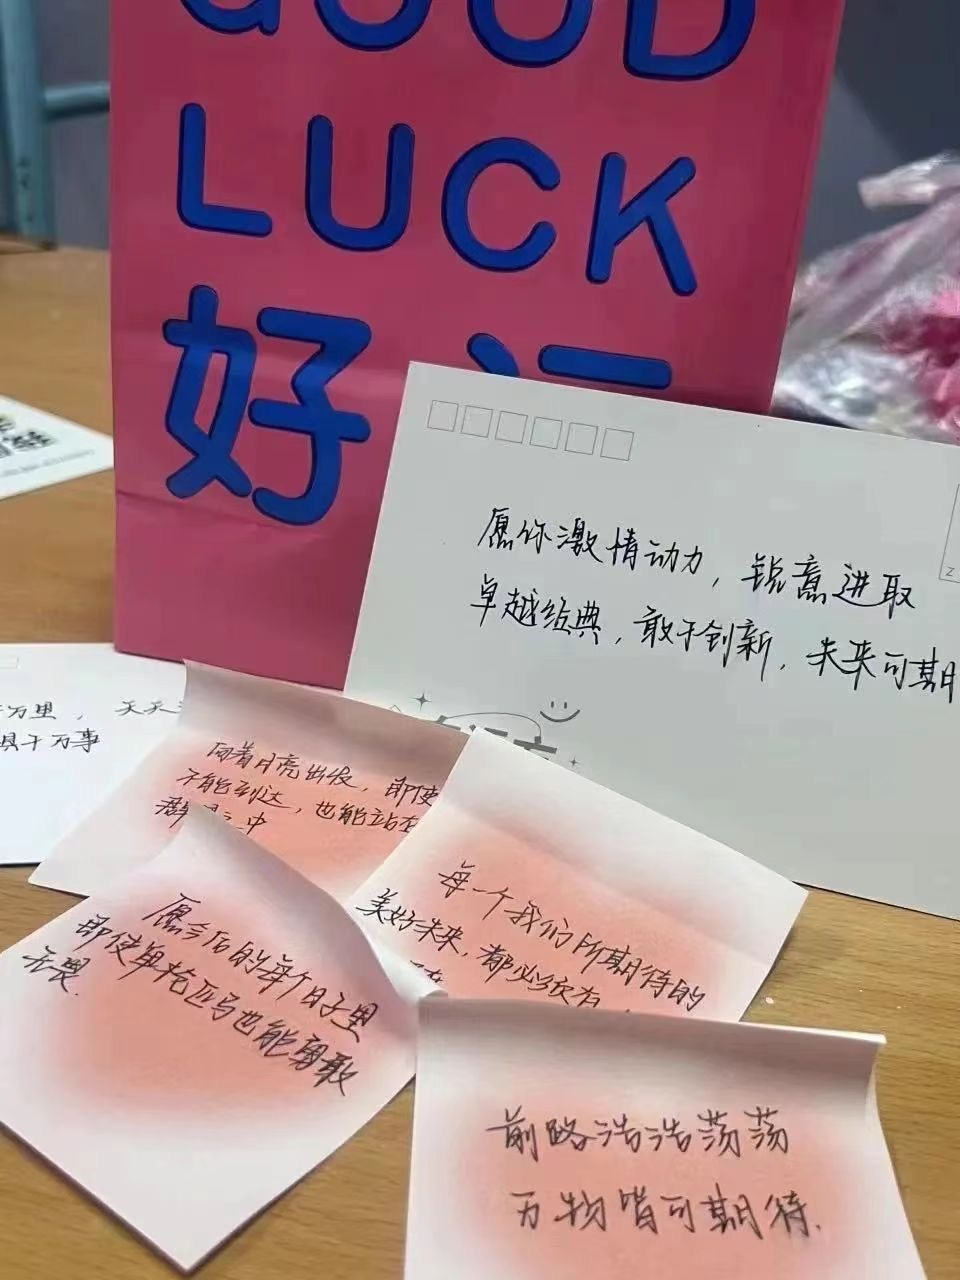 GOOD
LUCK
好
愿你激情动力，锐意进取
卓越经典，敢于创新，未来可期
万里， 天天
千万事
向着月亮出发，即使
不能到达，也能站在
中
每一个我们所期待的
美好未来，都必须有
愿今后的每个日子里
即使单枪匹马也能勇敢
无畏.
前路浩浩荡荡
万物皆可期待.